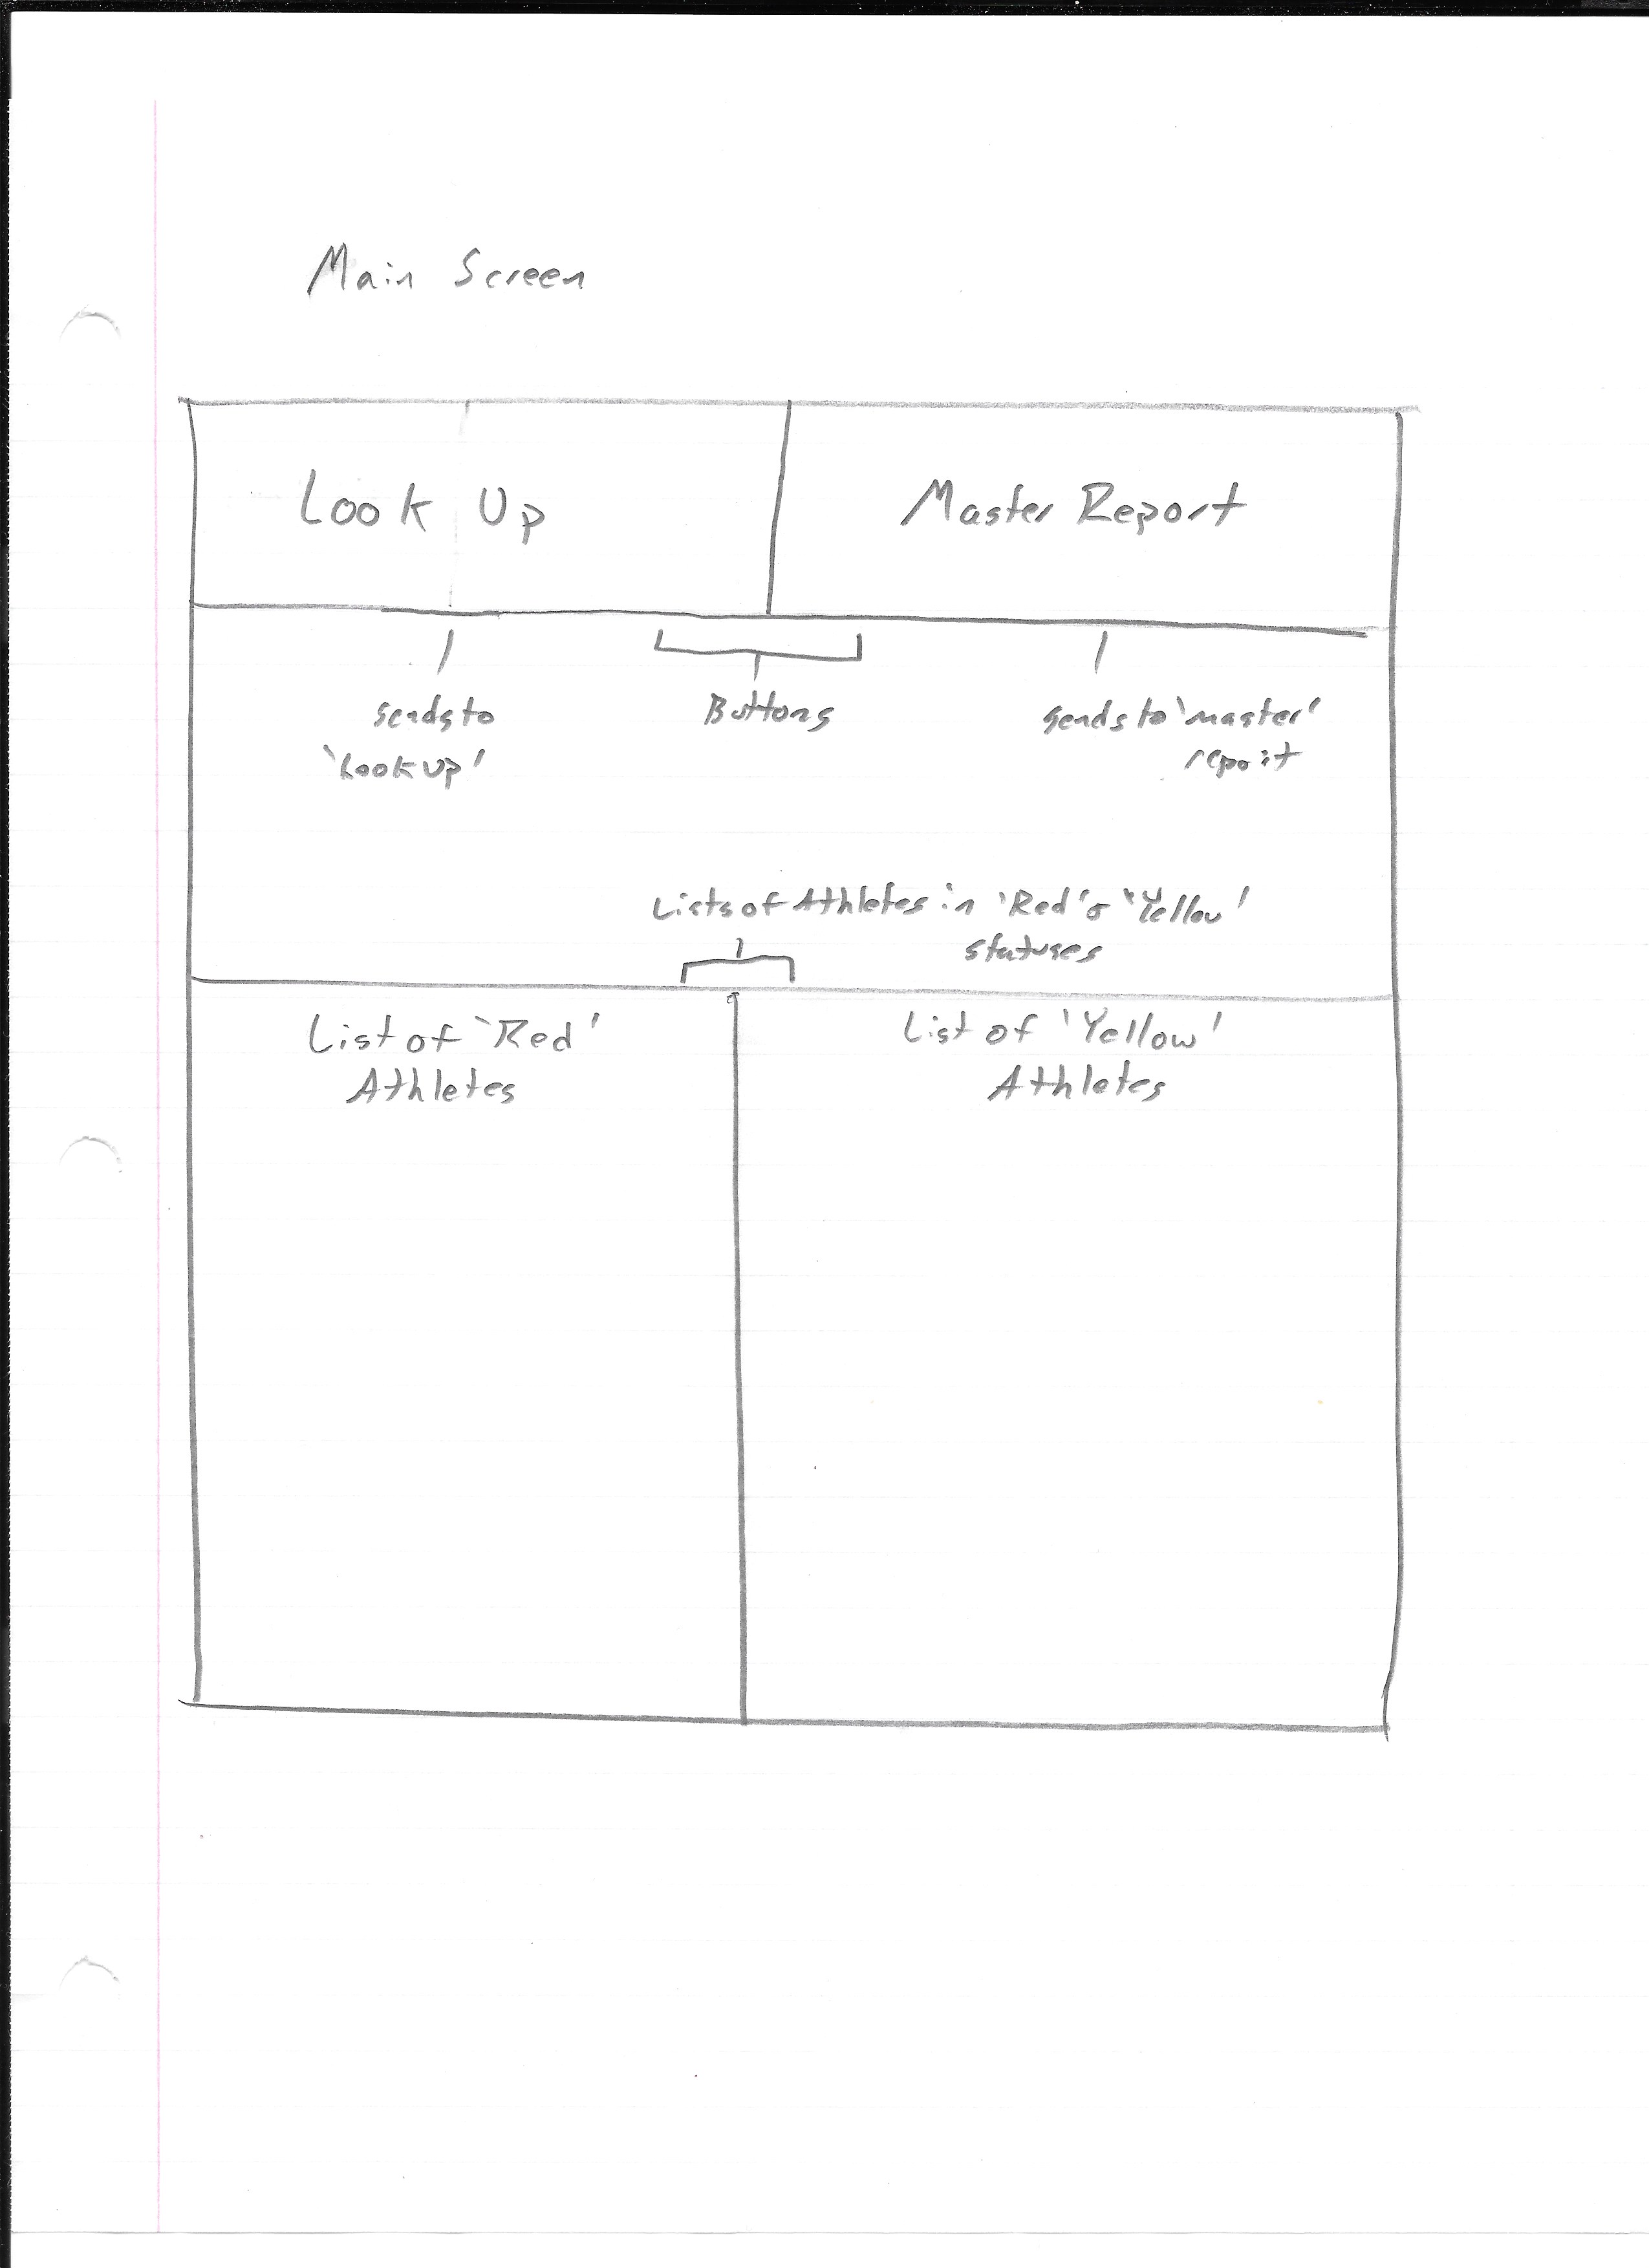 Main Screen
Look Up
Master Report
sends to
'Look up'
Buttons
sends to 'master'
report
Lists of Athletes in 'Red' & 'Yellow'
statuses
List of 'Red'
Athletes
List of 'Yellow'
Athletes